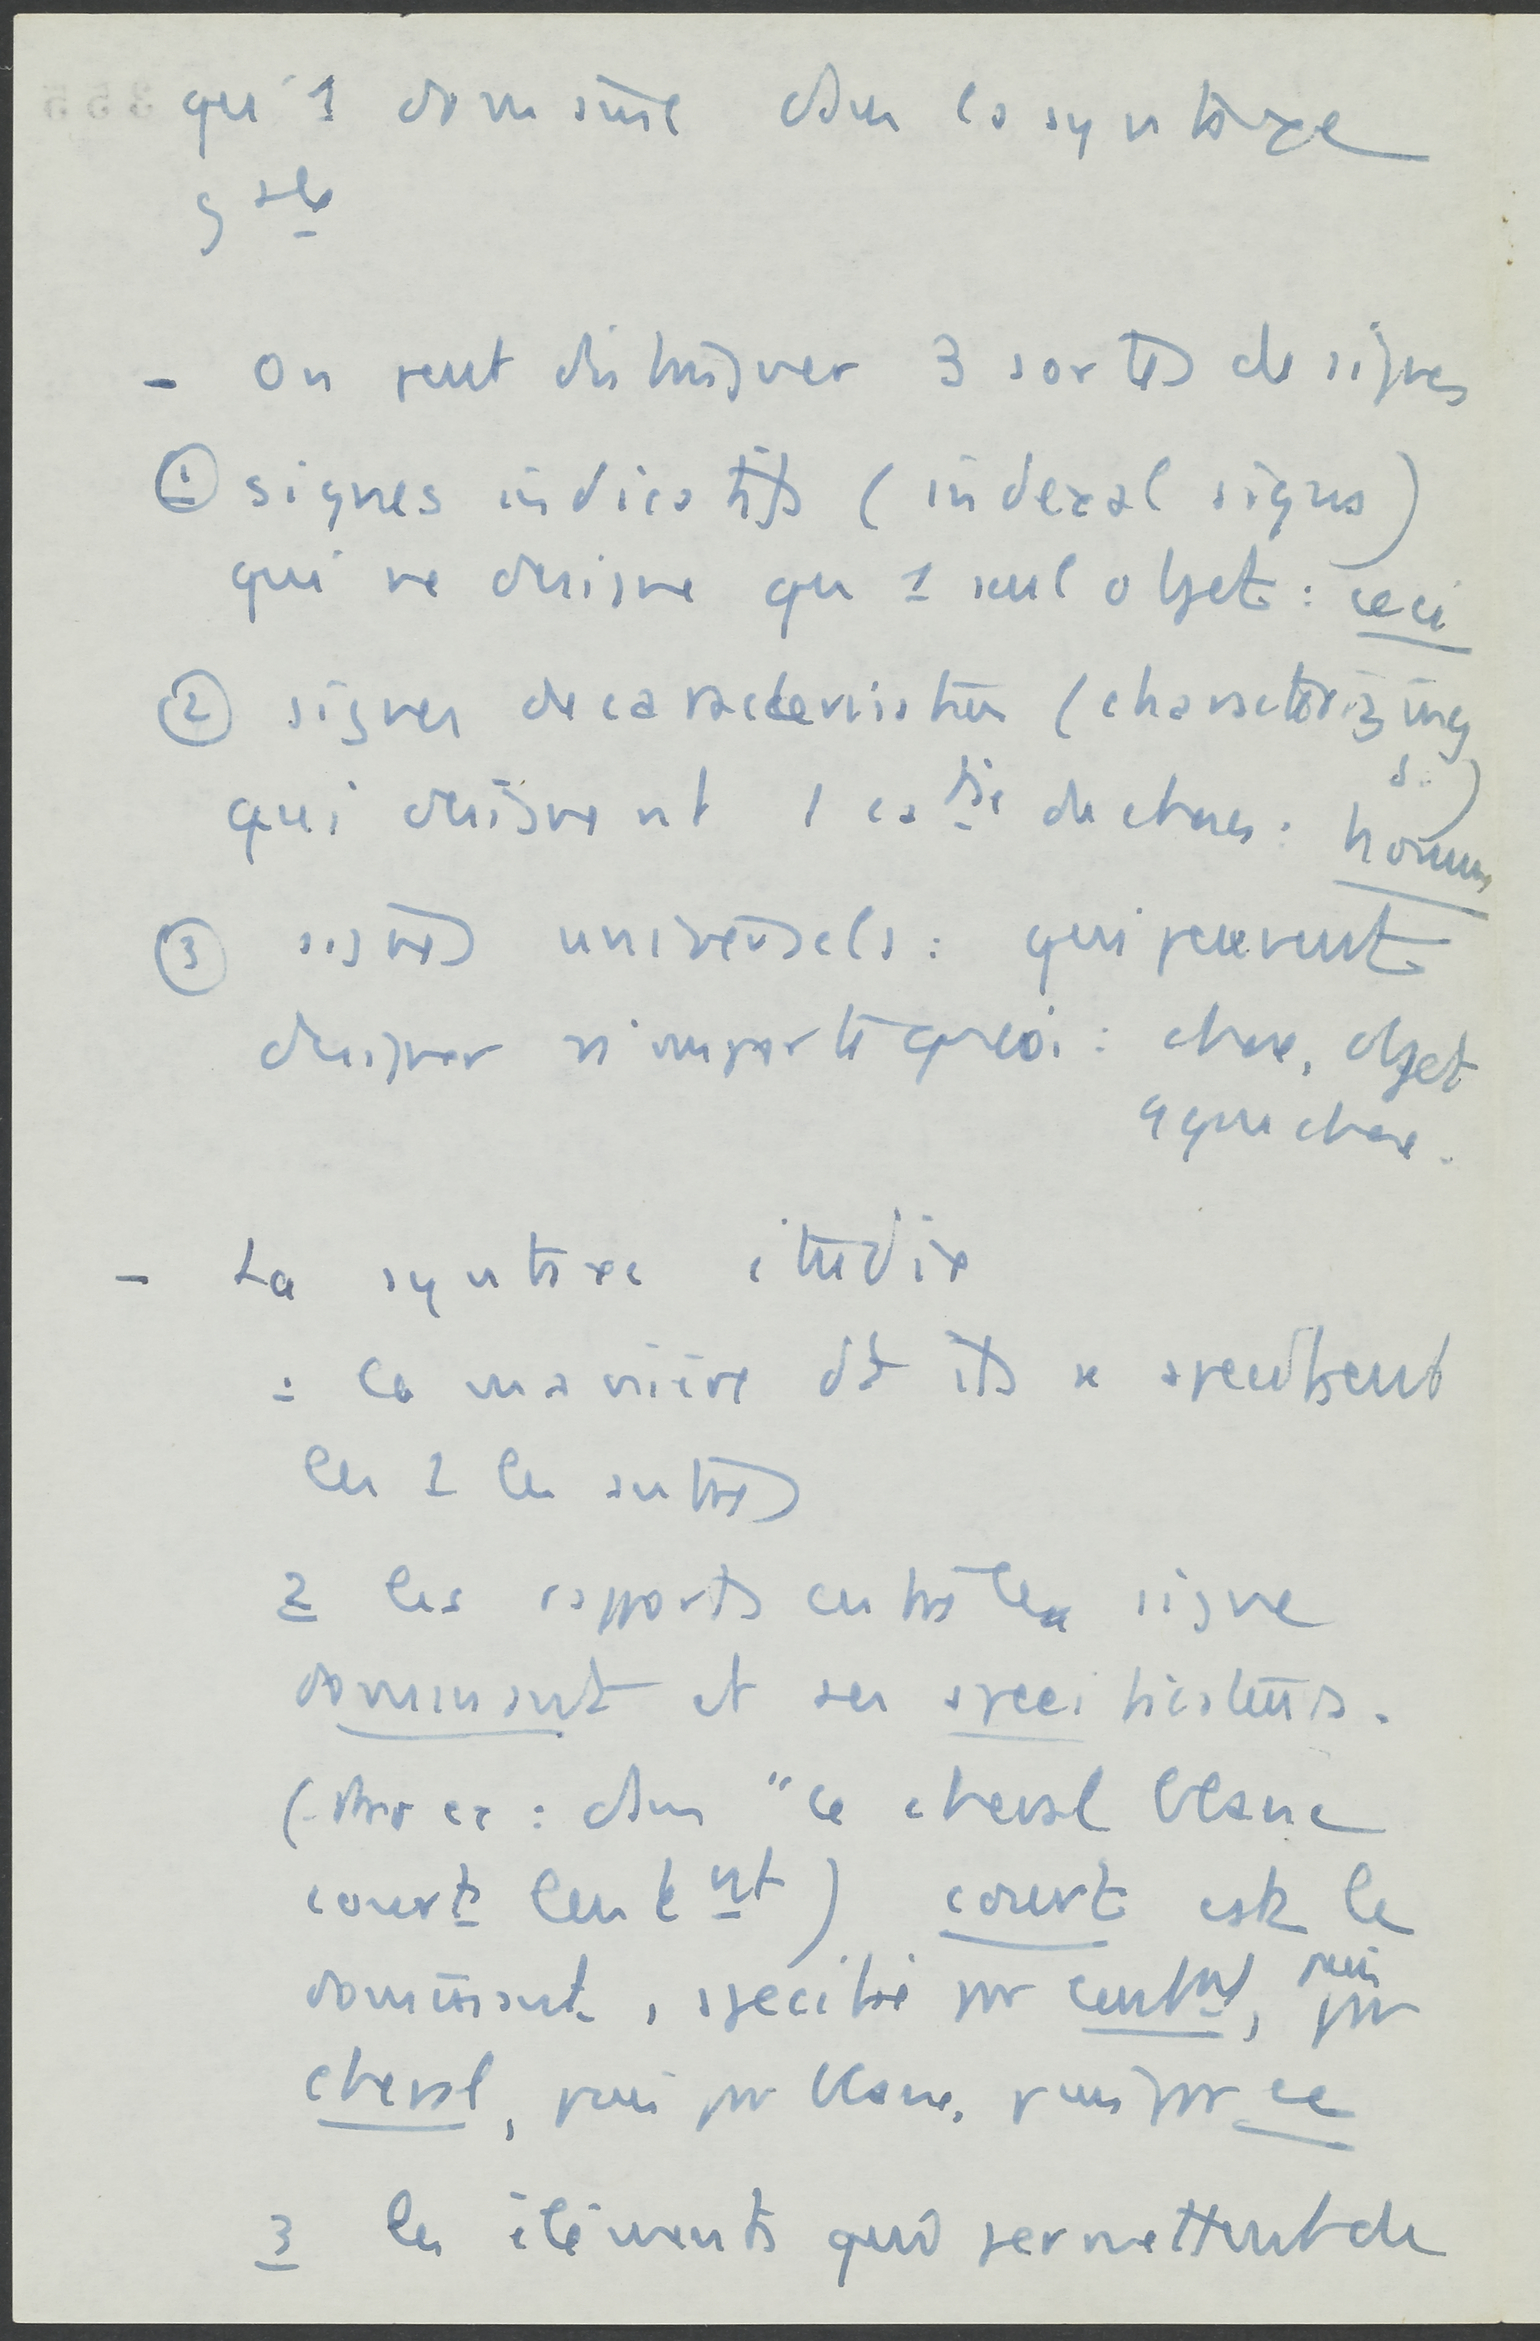 qu'1 domaine dans la syntaxe
gale
- On peut distinguer 3 sortes de signes
① signes indicatifs (indexal signs)
qui ne désigne qu'1 seul objet : ceci
② signes de caractérisation (characterizing
s.)
qui désignent 1 catie de choses : homme
③ signes universels : qui peuvent
désigner n'importe quoi : chose, objet
qque chose.
- La syntaxe étudie
1 la manière dt ils se spécifient
les 1 les autres
2 les rapports entre le signe
dominant et ses specificateurs.
( : dans "ce cheval blanc
court lentnt) court est le
dominant, spécifié pr lentnt, puis pr
cheval, puis pr blanc, puis pr ce
3 les éléments qui permettent de